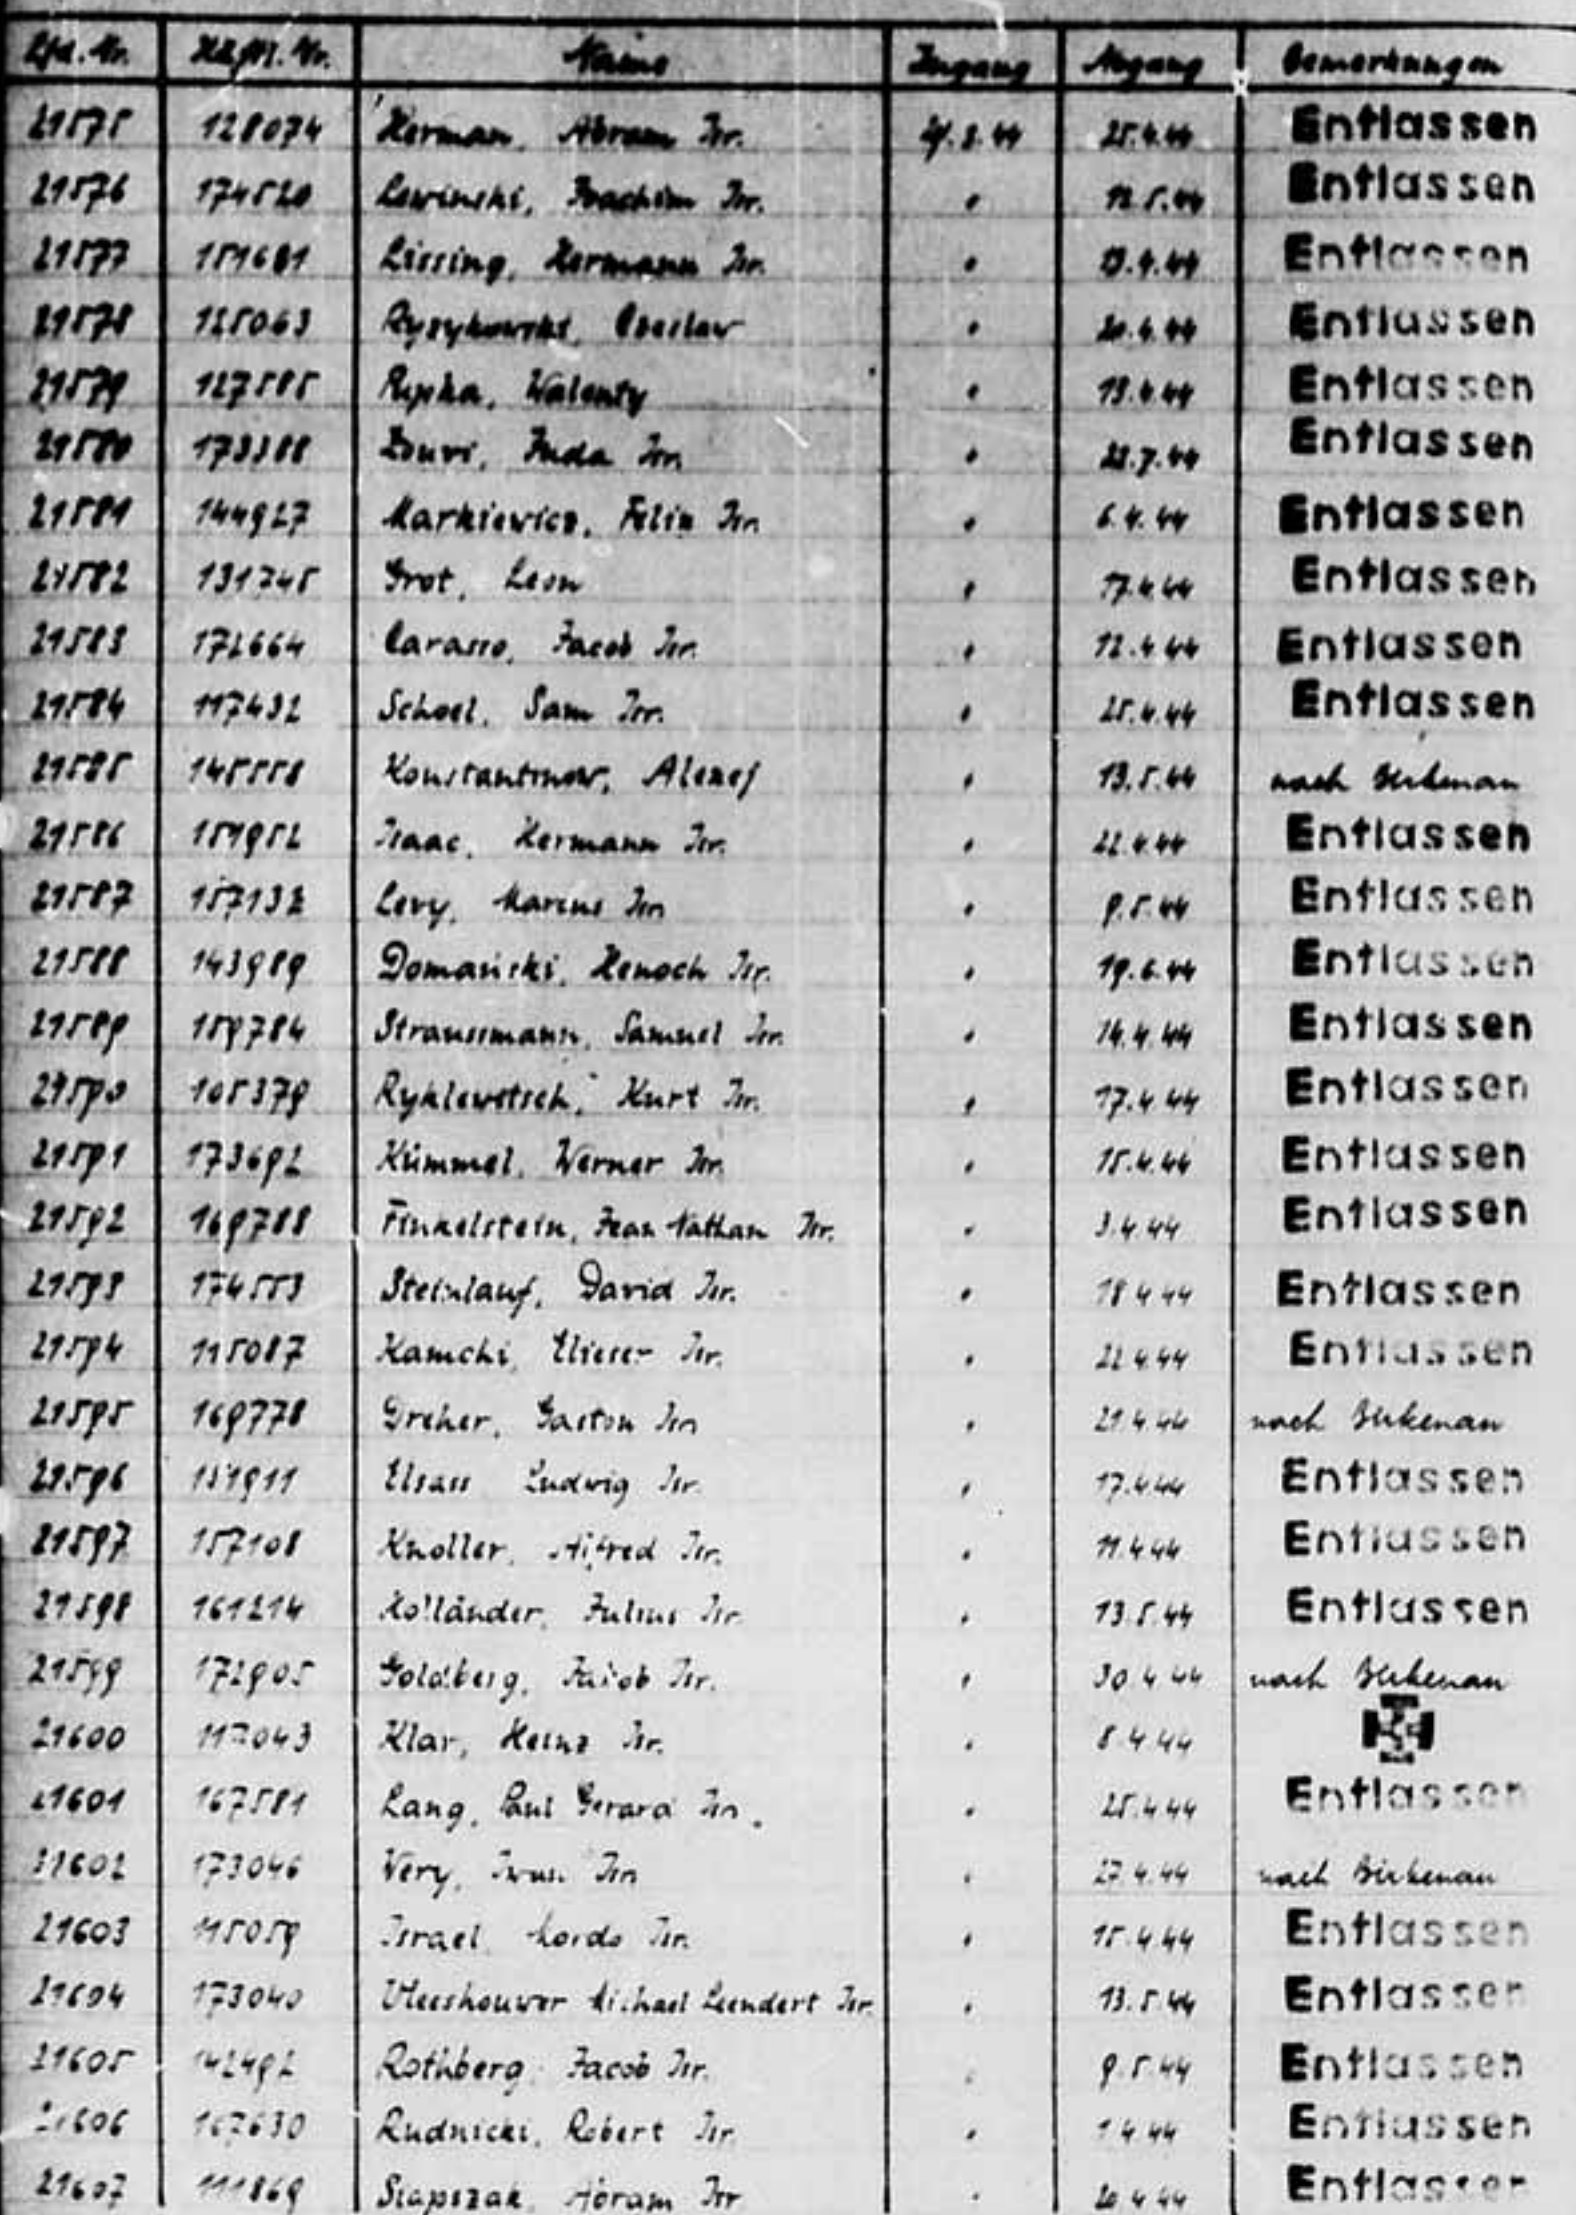 Lfd. Nr. Häftl. Nr. Name Zugang Abgang Bemerkungen
21575 128074 Herman, Abram Isr. 31.3.44 25.4.44 Entlassen
21576 174520 Lewinski, Joachim Isr. " 12.5.44 Entlassen
21577 151681 Lissing, Hermann Isr. " Entlassen
21578 125063 Czeslaw " 20.4.44 Entlassen
21579 127585 Rypka, Walenty " 13.4.44 Entlassen
21580 173388 Juda Isr. " Entlassen
21581 144927 Markiewicz, Felix Isr. " 6.4.44 Entlassen
21582 131745 Grot, Leon " 17.4.44 Entlassen
21583 172664 Carasso, Jacob Isr. " 12.4.44 Entlassen
21584 117432 Schoel, Sam Isr. " 25.4.44 Entlassen
21585 145558 Konstantinow, Alexej " 13.5.44 nach Birkenau
21586 151952 Isaac, Hermann Isr. " 22.4.44 Entlassen
21587 157132 Levy, Marcus Isr. " 9.5.44 Entlassen
21588 143989 Domański, Henoch Isr. " 19.6.44 Entlassen
21589 159784 Straussmann, Samuel Isr. " 14.4.44 Entlassen
21590 105379 Ryklewetsch, Kurt Isr. " 17.4.44 Entlassen
21591 173692 Kümmel, Werner Isr. " 15.4.44 Entlassen
21592 169788 Finkelstein, Jean Nathan Isr. " 3.4.44 Entlassen
21593 174553 Steinlauf, David Isr. " 18.4.44 Entlassen
21594 115087 Kamchi, Elieser Isr. " 22.4.44 Entlassen
21595 169778 Dreher, Gaston Isr. " 21.4.44 nach Birkenau
21596 151911 Elsass Ludwig Isr. " 17.4.44 Entlassen
21597 157108 Knoller, Alfred Isr. " 11.4.44 Entlassen
21598 161214 Holländer, Julius Isr. " 13.5.44 Entlassen
21599 172905 Goldberg, Jakob Isr. " 30.4.44 nach Birkenau
21600 117043 Klar, Heinz Isr. " 8.4.44
21601 167581 Lang, Paul Gerard Isr. " 25.4.44 Entlassen
21602 173046 Very, Isr. " 27.4.44 nach Birkenau
21603 115059 Israel, Mordo Isr. " 15.4.44 Entlassen
21604 173040 Vleeshouwer Michael Leendert Isr. " 13.5.44 Entlassen
21605 142492 Rothberg, Jacob Isr. " 9.5.44 Entlassen
21606 167630 Rudnicki, Robert Isr. " Entlassen
21607 111869 Abram Isr. " 20.4.44 Entlassen